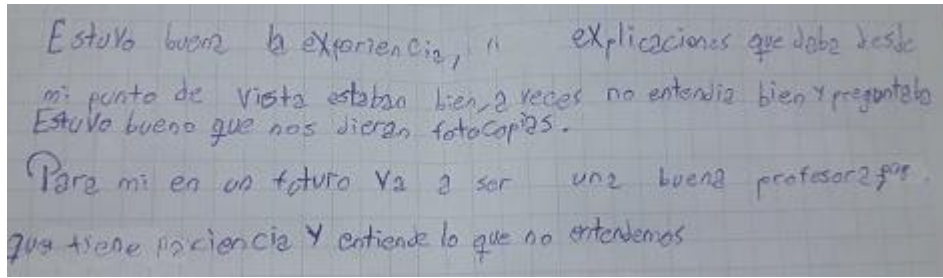 Estuvo buena la experiencia, explicaciones que daba desde
mi punto de vista estaban bien, a veces no entendia bien y preguntaba
Estuvo bueno que nos dieran fotocopias.
Para mi en un futuro va a ser una buena profesora por
que tiene paciencia y entiende lo que no entendemos